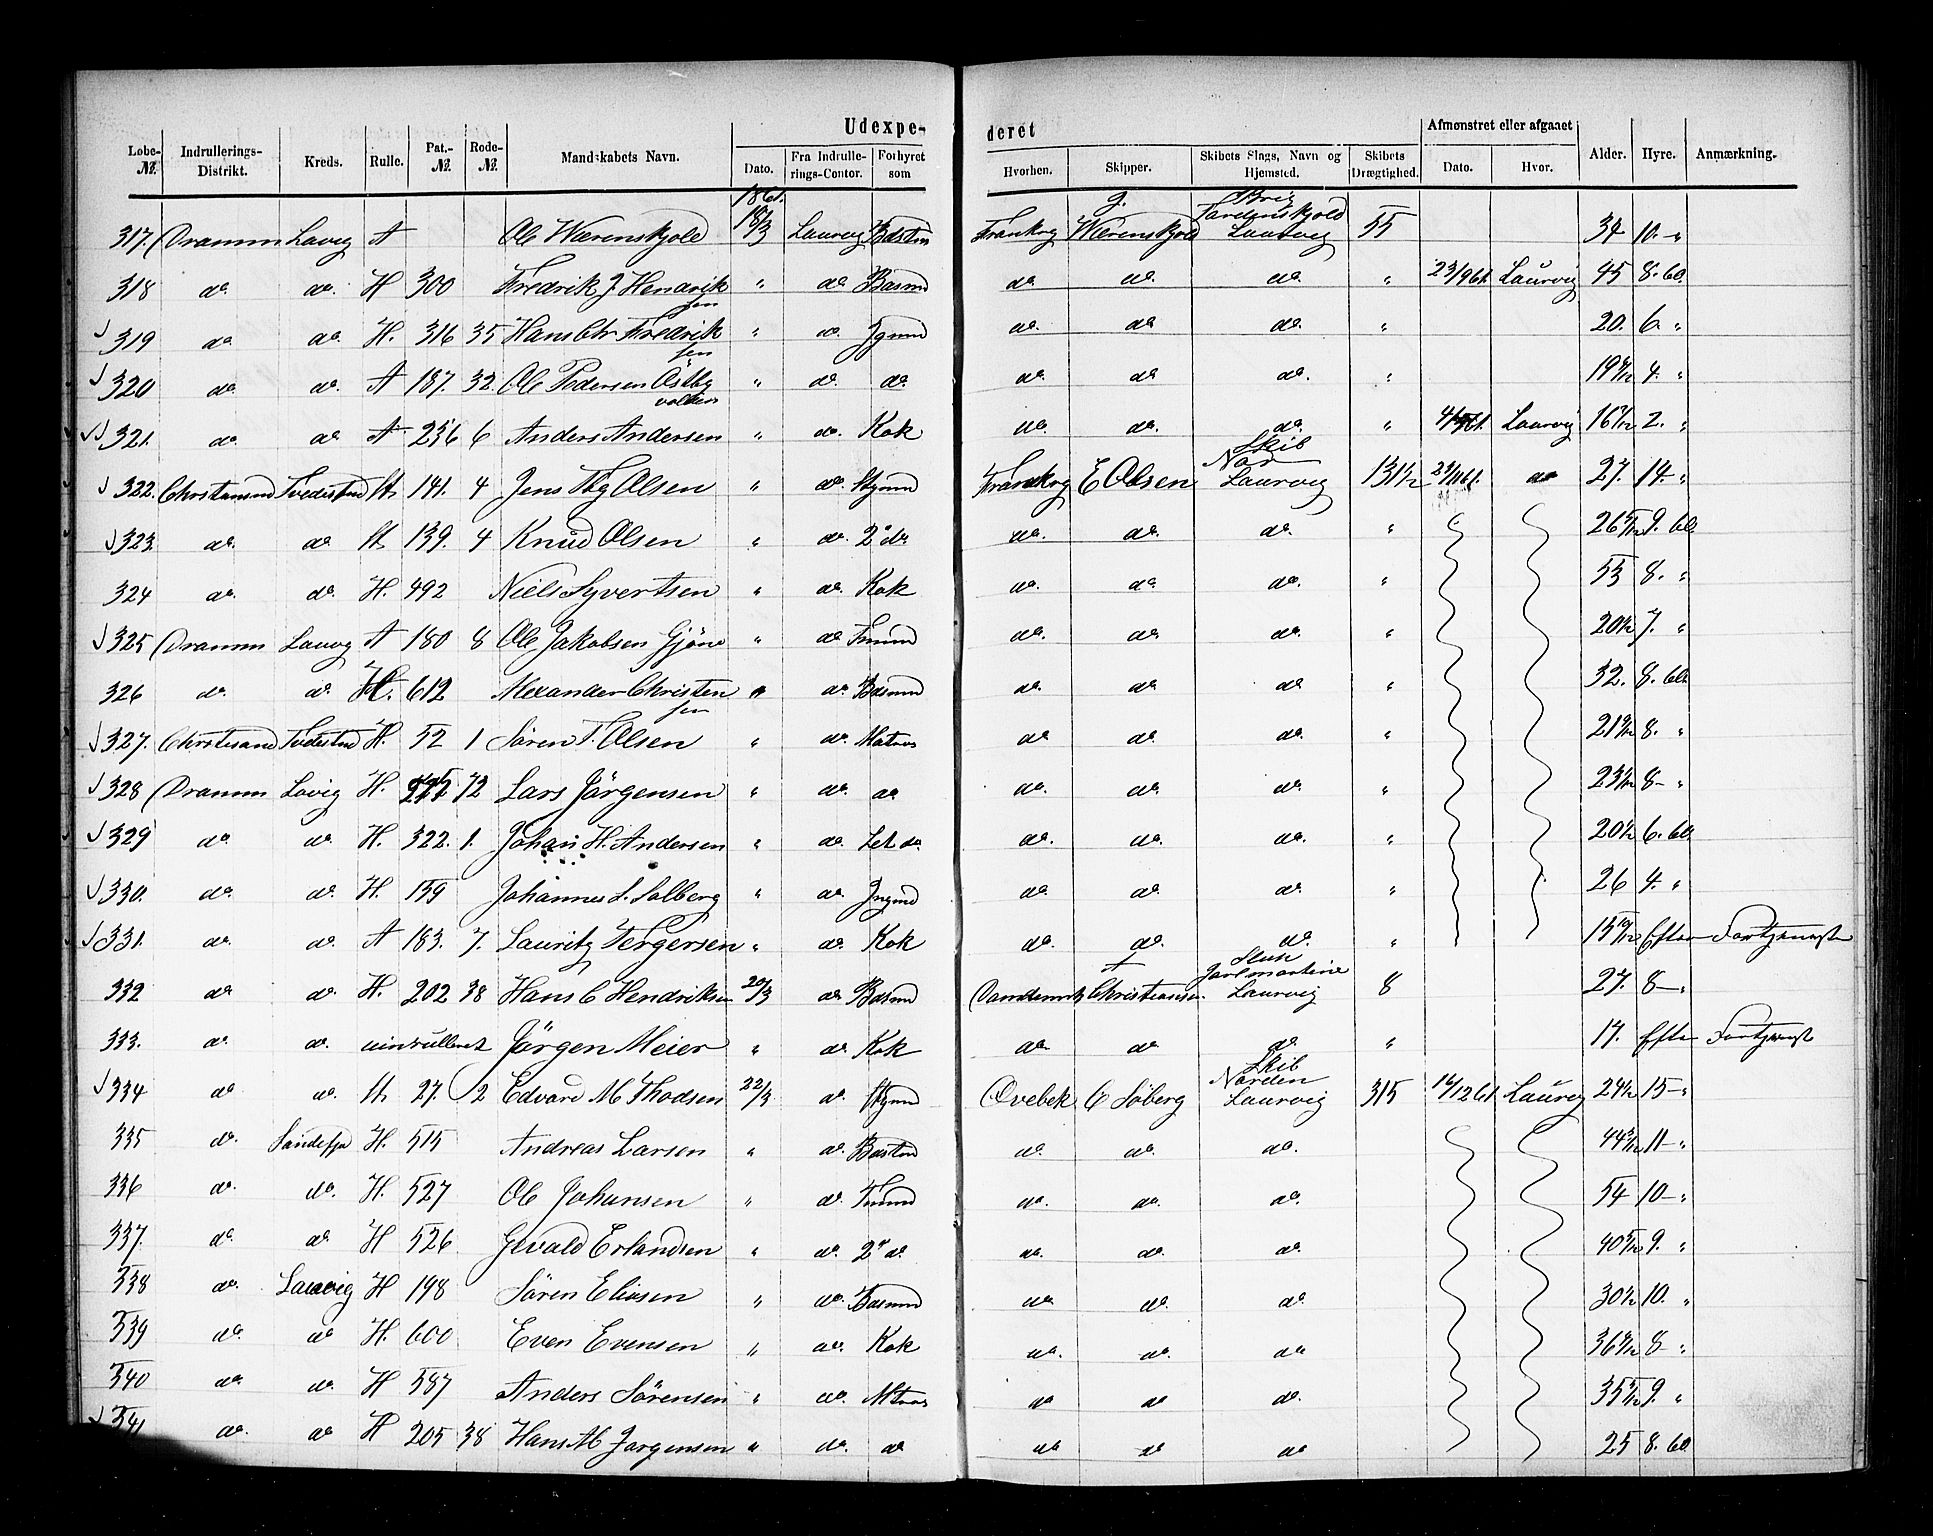 Udexpe- deret
Lobe-№. Indrullerings-Distrikt. Kreds. Rulle. Pat.-№. Rode-№. Mandskabets Navn. Dato. Fra Indrulle-rings-Contor. Forhyret som Hvorhen. Skipper. Skibets Slags, Navn og Hjemsted. Skibets Drægtighed. Afmønstret eller afgaaet Dato. Hvor. Alder. Hyre. Anmærkning.
1861.
317. Dramm Lavig A Ole Wærenskjold 18/3 Laurvig Frankrg J. Wærenskjold Brig Tordenskjold Laurvig 55 34 10.- "
318 do. do. H 300 Fredrik J Hendriksen " do do. do. do. " 23/9 61. Laurvig 45 8. 60.
319 do do. H. 316 35 Hans Chr Fredriksen " do. Jgmd do. do do. " 20. 6. "
320 do. do. A 187. 32. Ole Pedersen Östby " do. do. do. do do. " 19 4. "
321. do. do A 236 6 Anders Andersen " do. Kok do. do. do. " Laurvig 16 2. "
322. Christiansnd Tvedestnd St. 141. 4 Jens Thg Olsen " do. Stymd Frankrg E Olsen Skib Nor Laurvig 131½ do 27. 14. "
323. do. do St. 139. 4 Knud Olsen " do. 2 do do. do. do. " 26 9. 60
324 do. do. H. 492 Niels Syvertsen " do. Kok do. do. do. " 53 8. "
325 Dramm Laurvg A 180 8 Ole Jakobsen Gjöne " do Tmmd do. do. do. " 20 7. "
326 do. do. H. 612 Alexander Christensen " do. do. do. do " 32. 8. 60
327. Christiansand Tvedestnd H. 52 1 Sören T. Olsen " do. Matros do do. do. " 21 8. "
328 Dramm Lavig H. 72 Lars Jörgensen " do. do do. do. do. " 23 8- "
329 do. do. H. 322. 1. Johan H. Andersen " do. Let do. do. do. do. " 20 6. 60
330. do. do. H. 159 Johannes S. Solberg " do. Jngmd do. do. do. " 26 4. "
331. do. do. A 183. 7. Lauritz Tergersen " do. Kok do. do. do. " 15 Efter Fortjeneste
332 do do. H. 202 38 Hans C Hendriksen 20/3 do Christiansen Laurvig 8 27. 8- "
333. do. do. uindrulleret Jörgen Meier " do Kok do. do do " 17. Efter Fortjenst
334 do do. St. 27. 2 Edvard M Thodsen 22/3 do. Stymd Ovebek C Söberg Skib Norden Laurvig 315 16/12 61 Laurvig 24 15- "
335 do. Sandefjo H. 515 Andreas Larsen " do. do. do. do. 44 11- "
336 do. do. H. 527 Ole Johansen " do. Tmmd do. do. do. 54 10- "
337. do. do H 526 Gevald Erlandsen " do. 2 do. do. do. do 40 9. "
338 do. Laurvig H 198 Sören Eliasen " do. do do. do 30 10. "
339 do. do H. 600 Even Evensen " do. Kok do. do. do 36 8- "
340 do. do. H 587 Anders Sörensen " do. Mtros do do do. 35 9. "
341 do. do H 205 38 Hans M Jorgensen " do. do do do do 25 8. 60